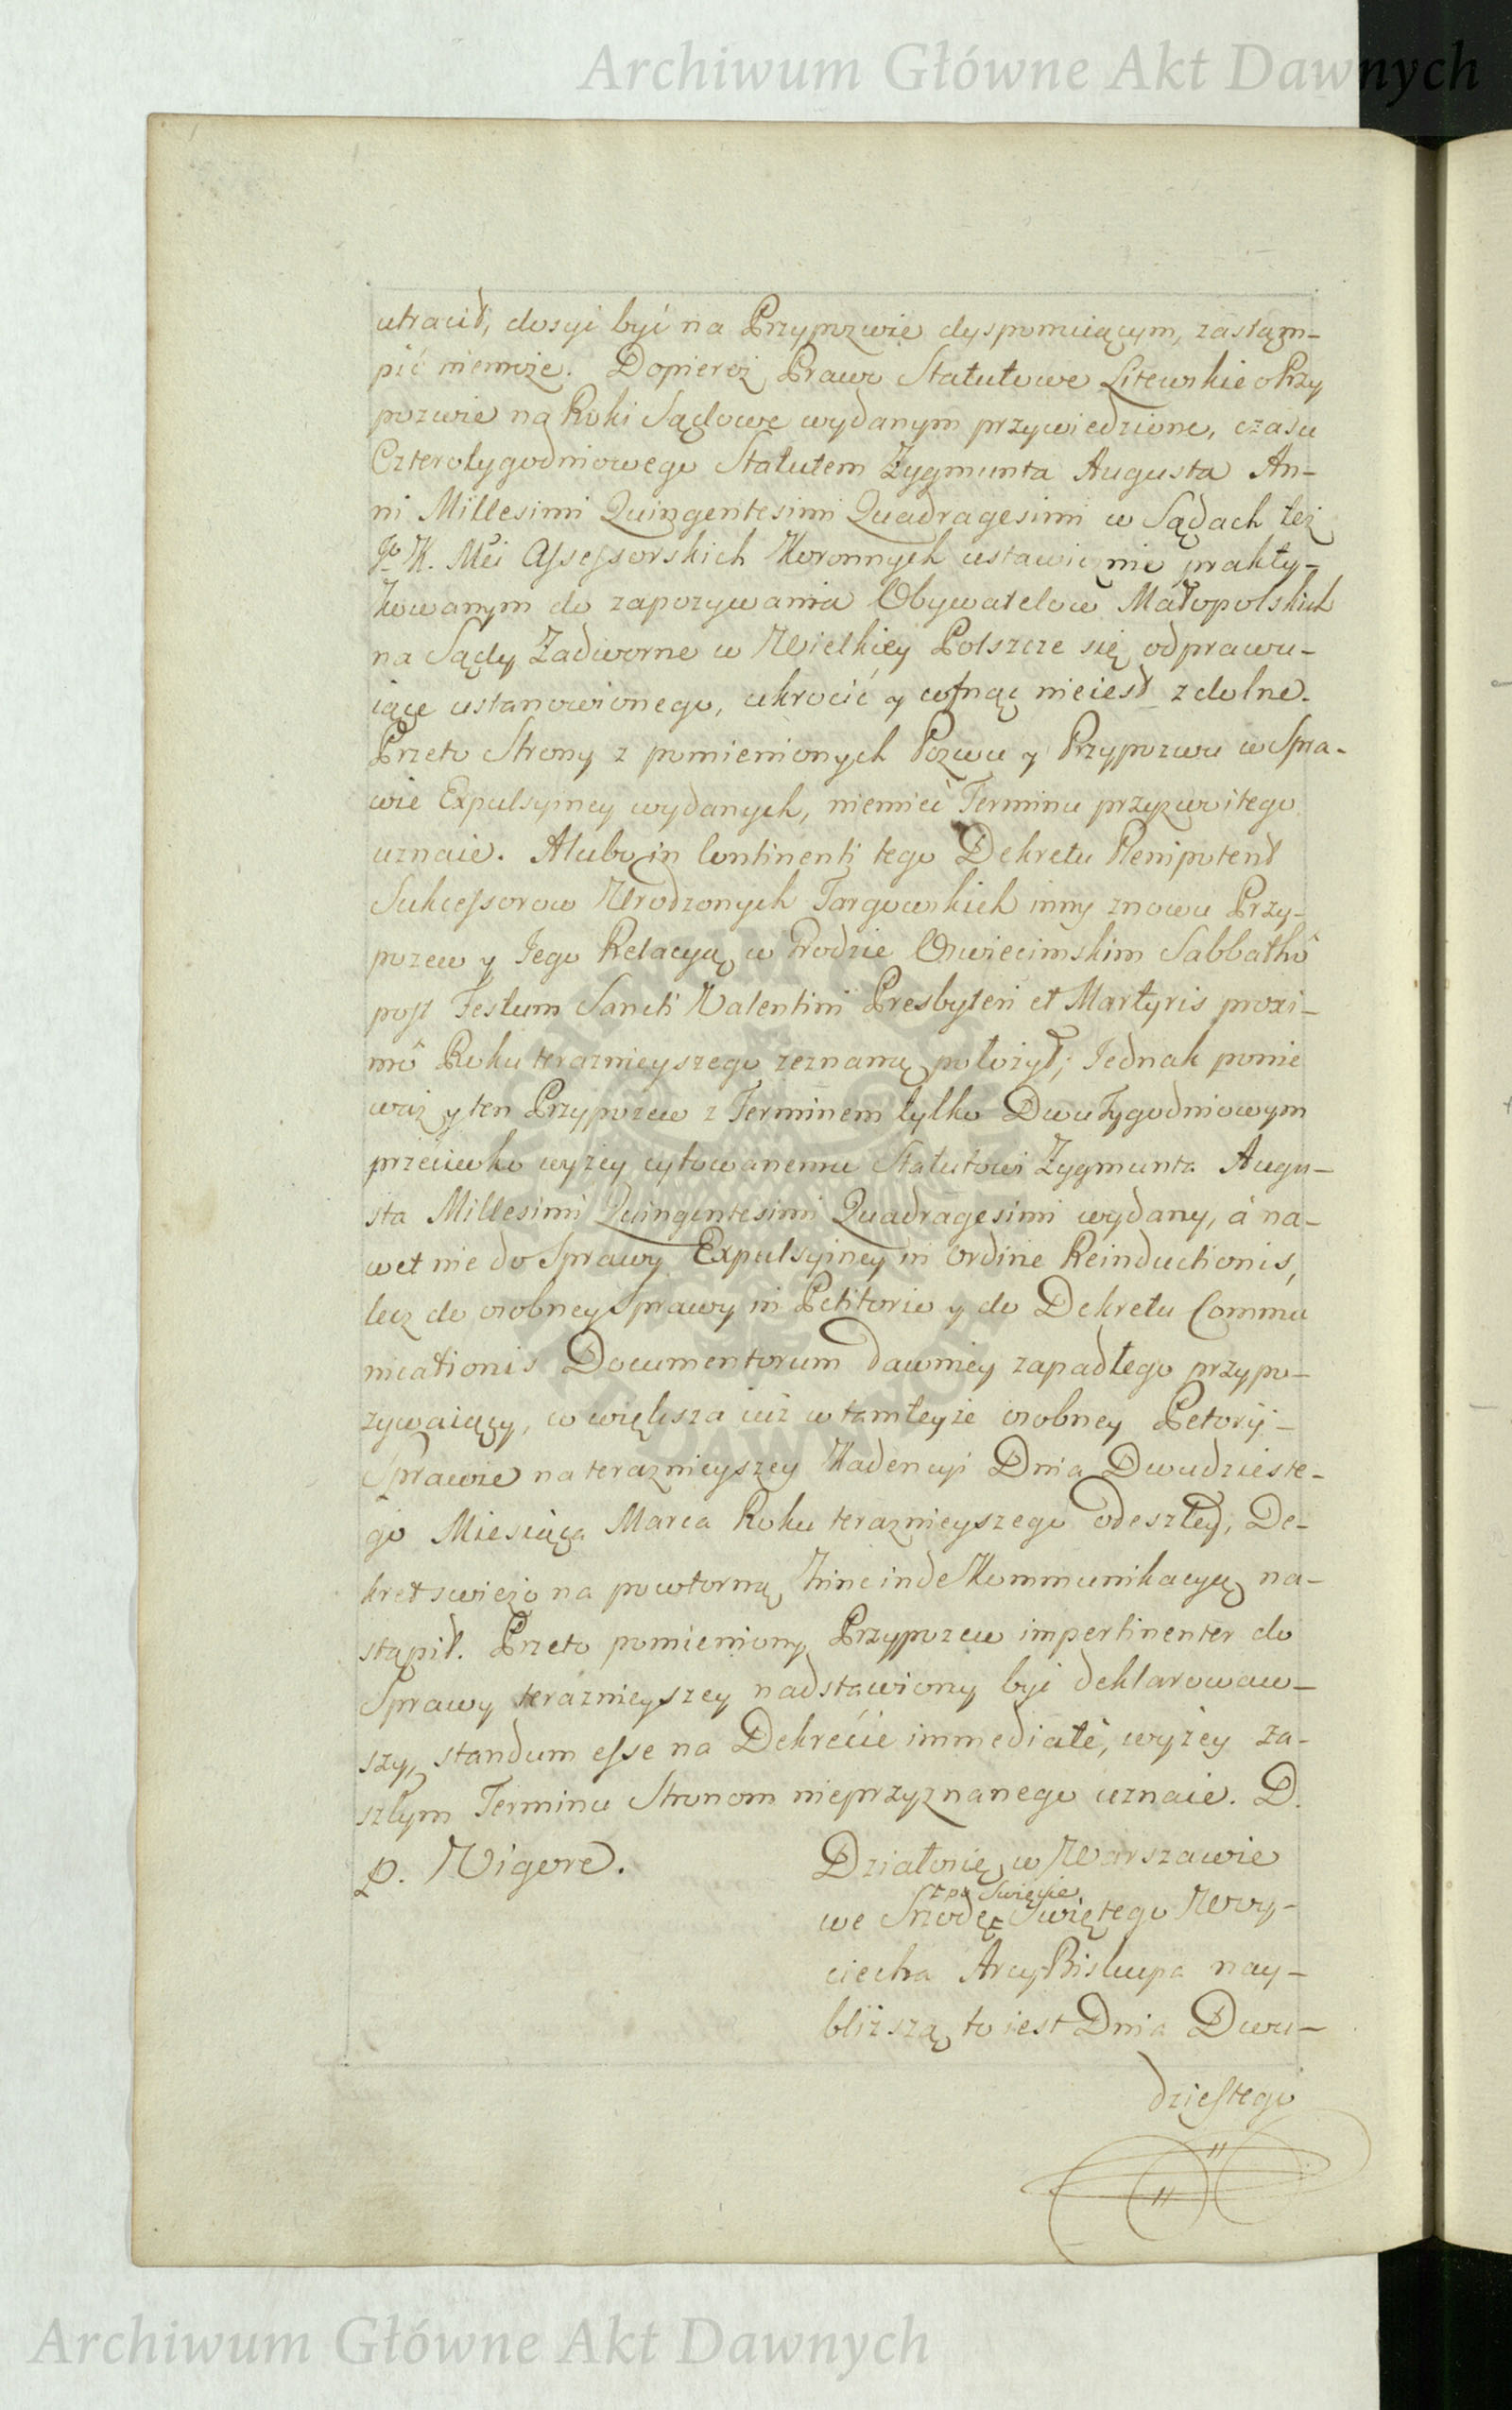 Archiwum Główne Akt Dawnych
utracił, dosyć być na Przypozwie dysponuiącym, zastąm-
pić niemoże. Dopieroż Prawo Statutowe Litewskie o Przy
pozwie na Roki Sądowe wydanym przywiedzione, czasu
Czterotygodniowego Statutem Zygmunta Augusta An-
ni Millesimi Quingentesimi Quadragesimi w Sądach też
Jo K. Mci Assessorskich Koronnych ustawicznie prakty-
kowanym do zapozywania Obywatelow Małopolskich
na Sądy Zadworne w Wielkiey Polszcze się odprawu-
iące ustanowionego, ukrocić y cofnąć nieiest zdolne.
Przeto Strony z pomienionych Pozwu y Przypozwu w Spra-
wie Expulsyiney wydanych, niemieć Terminu przyzwoitego
uznaie. A lubo in Continenti tego Dekretu Plenipotent
Sukcessorow Urodzonych Targowskich inny znowu Przy-
pozew y Jego Relacyą w Grodzie Oswiecimskim Sabbathô
post Festum Sancti Valentini Presbyteri et Martyris proxi-
mô Roku teraznieyszego zeznaną położył; Jednak ponie
waż y ten Przypozew z Terminem tylko Dwutygodniowym
przeciwko wyżey cytowanemu Statutowi Zygmunta Augu-
sta Millesimi Quingentesimi Quadragesimi wydany, á na-
wet nie do Sprawy Expulsyiney in Ordine Reinductionis,
lecz do osobney Sprawy in Petitorio y do Dekretu Commu
nicationis Documentorum dawniey zapadłego przypo-
zywaiący, co większa iuż w tamteyże osobney Petorÿ-
Sprawie na terazniejszey Kadencyi Dnia Dwudzieste-
go Miesiąca Marca Roku terazniejszego odeszłey, De-
kret swieżo na powtorną hinc inde Kommunikacyą na-
stąpił. Przeto pomieniony Przypozew impertinenter do
Sprawy terazniejszey nadstawiony być deklarowaw-
szy, standum esse na Dekrecie immediatè, wyżey za-
szłym Terminu Stronom nieprzyznanego uznaie. D.
p. Vigore.
Działosię w Warszawie
we Srzodę z po Swięcie Swiętego Woy-
ciecha Arcy-Biskupa nay-
bliższą to iest Dnia Dwu-
dziestego
Archiwum Główne Akt Dawnych